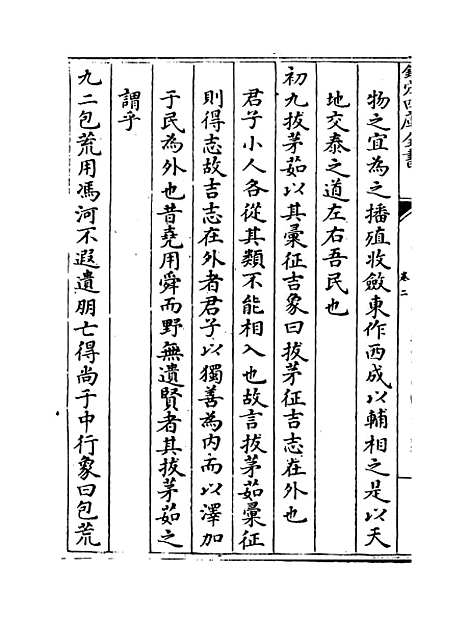 欽定四庫全書
卷二
物之宜為之播殖收斂東作西成以輔相之是以天
地交泰之道左右吾民也
初九拔茅茹以其彚征吉象曰拔茅征吉志在外也
君子小人各從其類不能相入也故言拔茅茹彚征
則得志故吉志在外者君子以獨善為内而以澤加
于民為外也昔堯用舜而野無遺賢者其拔茅茹之
謂乎
九二包荒用馮河不遐遺朋亡得尚于中行象曰包荒